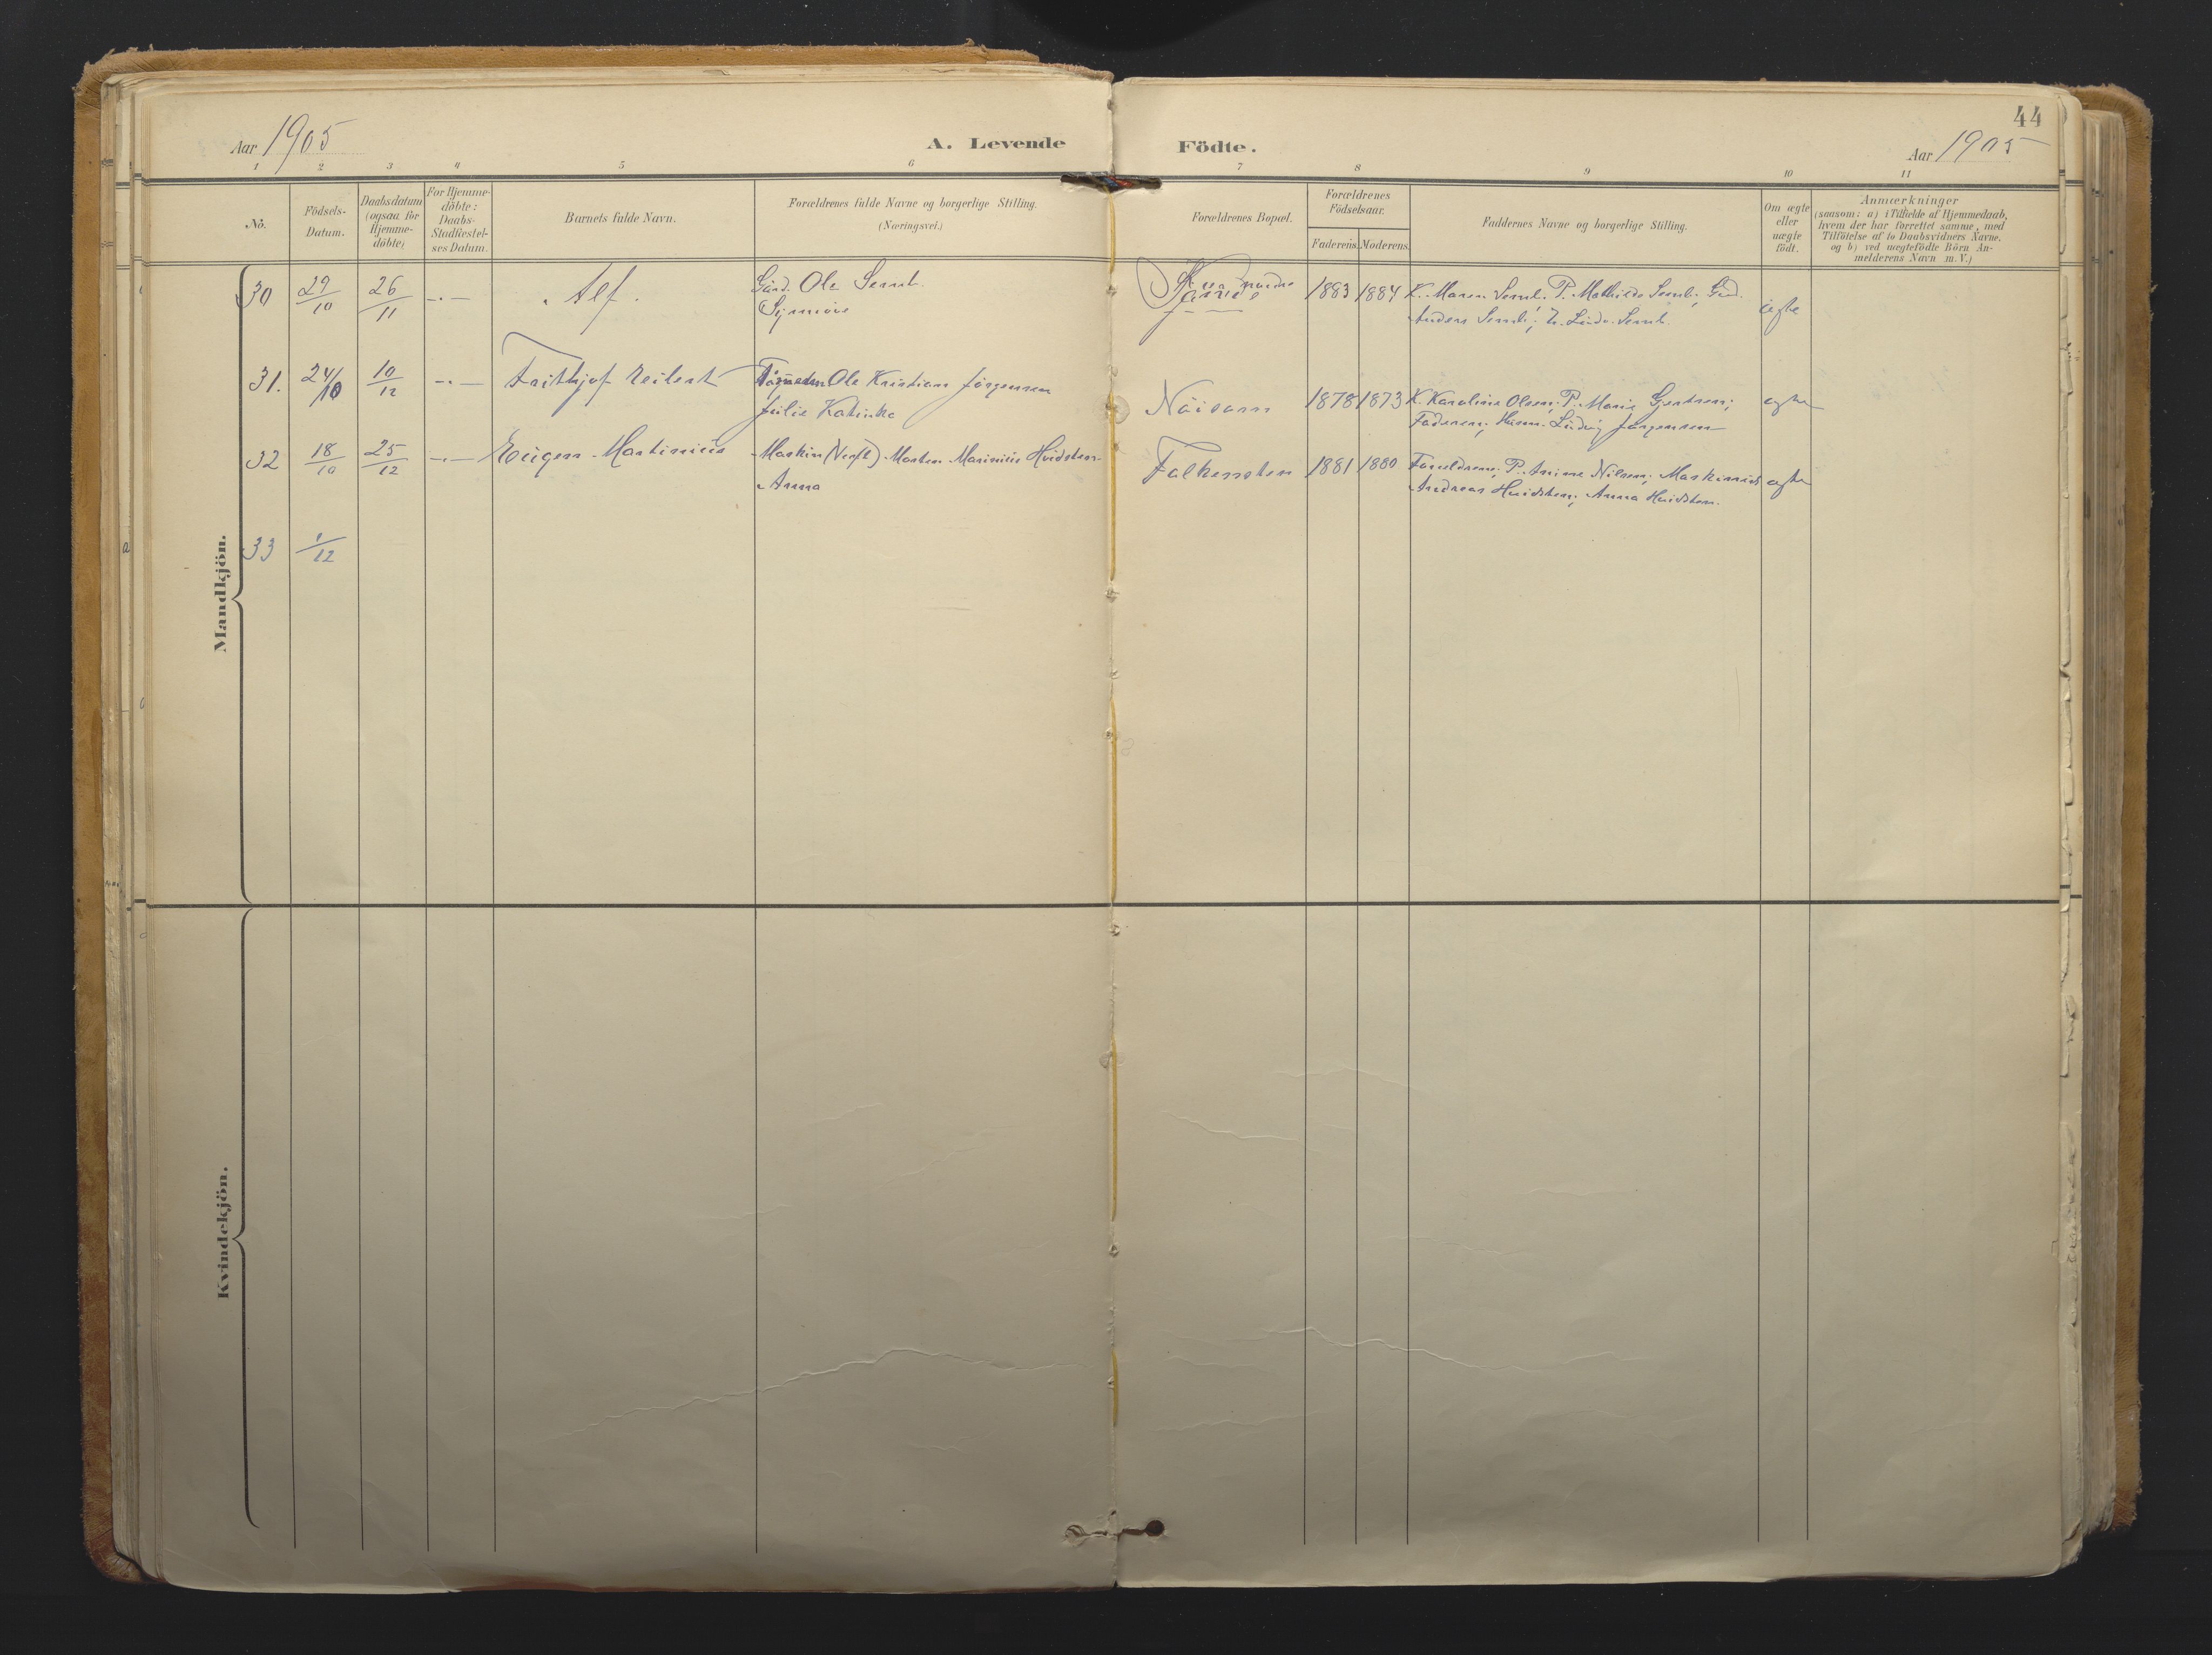 44
Aar 1905
A. Levende Födte.
Aar 1905
1 2 3 4 5 6 7 8 9 10 11
No.
Födsels-
Datum.
Daabsdatum
(ogsaa for
Hjemme-
döbte)
For Hjemme-
döbte:
Daabs-
Stadfæstel-
ses Datum.
Barnets fulde Navn.
Forældrenes fulde Navne og borgerlige Stilling.
(Næringsvei.)
Forældrenes Bopæl.
Forældrenes
Födselsaar.
Faderens. Moderens.
Faddernes Navne og borgerlige Stilling.
Om ægte
eller
uægte
födt.
Anmærkninger
(saasom: a) i Tilfælde af Hjemmedaab,
hvem der har forrettet samme, med
Tilföielse af to Daabsvidners Navne.
og b) ved uægtefödte Börn An-
melderens Navn m.V.)
Mandkjön.
30 29/10 26/11 -.- Alf. Gård. Ole Semb 1883 1884 K. Maren Semb; P. Mathilde Semb; Gd.
Anders Semb; Semb. ægte
31. 24/10 10/12 -.- Frithjof Ole Kristian Jörgensen
Julie Katinka Nöisom 1878 1873 K. Karoline Olsen; P. Marie
Faderen; Ludvig Jørgensen ægte
32 18/10 25/12 -.- Eugen Martinius Maskin Morten Marinius Hvidsten
Anna Falkensten 1881 1880 Forældrene; P. Anine Nilsen;
Andreas Hvidsten; Anna Hvidsten. ægte
33 1/12
Kvindekjön.